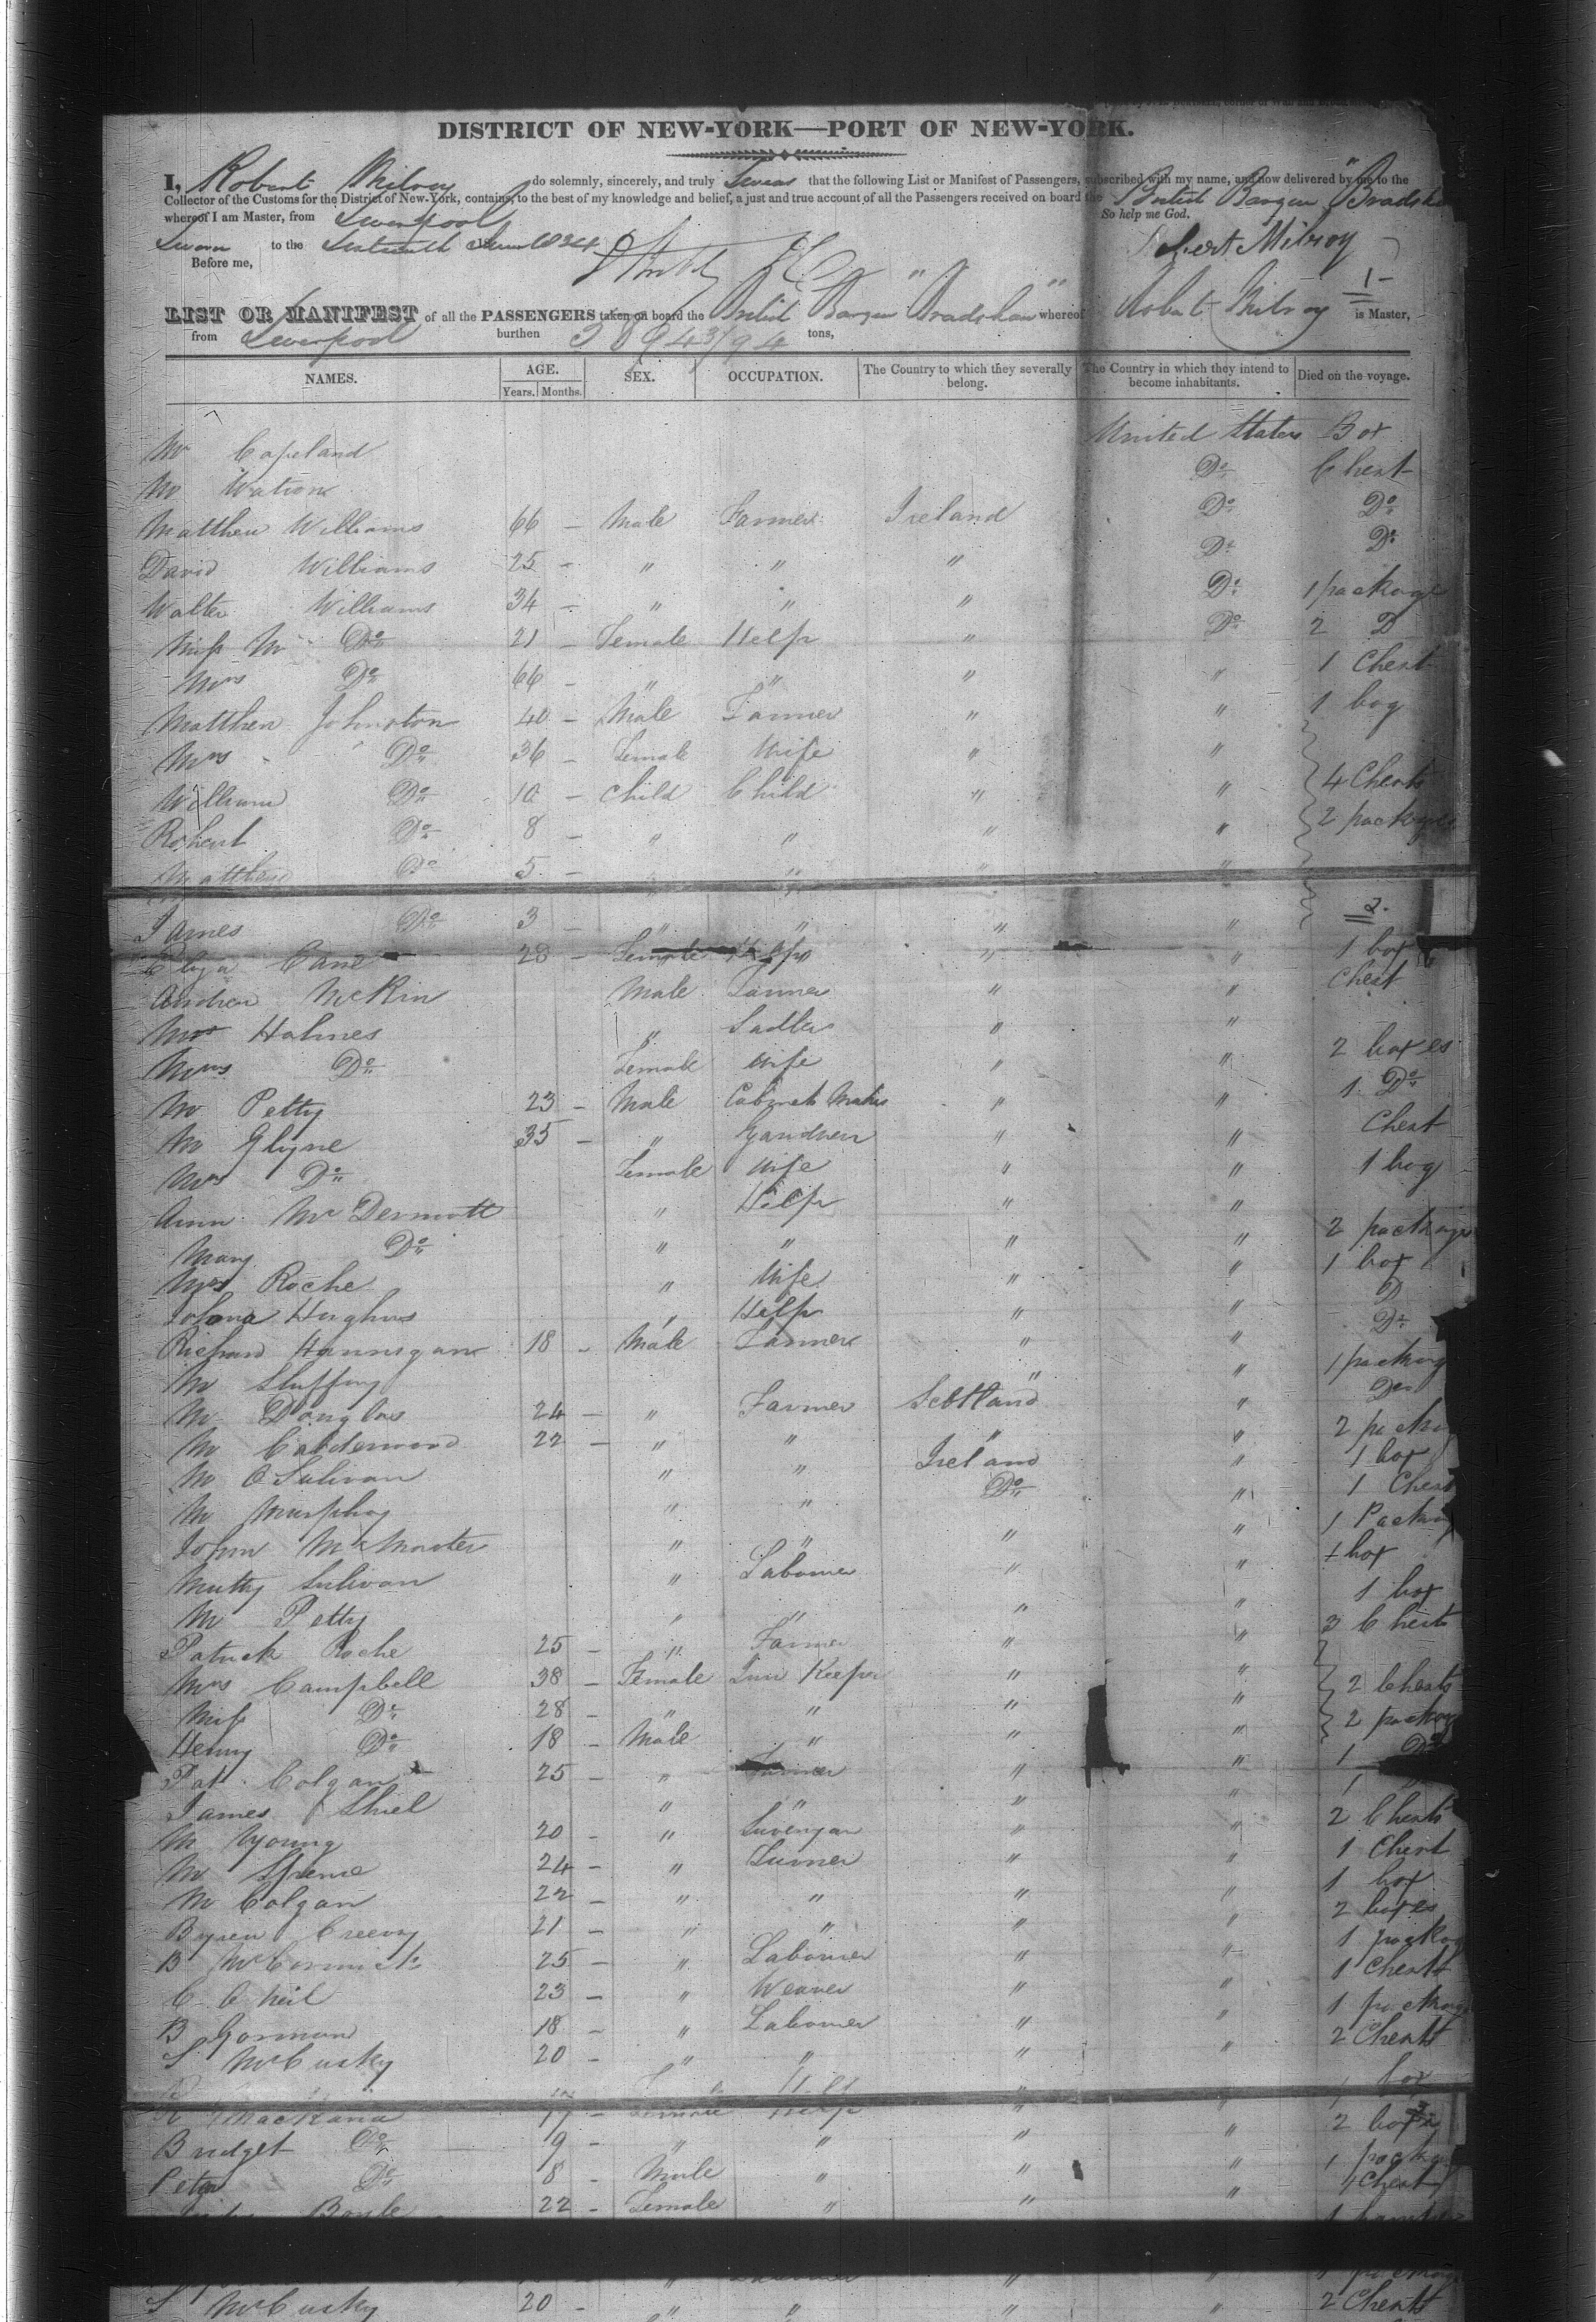 DISTRICT OF NEW-YORK—PORT OF NEW-YORK.
I, Robert Milroy do solemnly, sincerely, and truly Swear that the following List or Manifest of Passengers, subscribed with my name, and now delivered by me to the
Collector of the Customs for the District of New-York, contains, to the best of my knowledge and belief, a just and true account of all the Passengers received on board the British Barque "Bradsha
whereof I am Master, from Liverpool So help me God.
Sworn to the Sixteenth June 1834 Robert Milroy
Before me,
1
LIST OR MANIFEST of all the PASSENGERS taken on board the British Barque "Bradshaw" whereof Robert Milroy is Master,
from Liverpool burthen 389 43/94 tons,
NAMES. AGE. Years. Months. SEX. OCCUPATION. The Country to which they severally belong. The Country in which they intend to become inhabitants. Died on the voyage.
Mr Copeland United States Box
Mr Watson Do Chest
Matthew Williams 66 - Male Farmer Ireland Do Do
David Williams 25 - " " " Do Do
Walter Williams 34 - " " " Do 1 package
Miss M Do 21 - Female Help " Do 2 D
Mrs Do 66 - " " " " 1 Chest
Matthew Johnston 40 - Male Farmer " " 1 bag
Mrs Do 36 - Female Wife " "
William Do 10 - Child Child " " 4 Chests
Robert Do 8 - " " " " 2 packages
Matthew Do 5 - " " " "
James Do 3 - " " " " 2.
Eliza Cane 28 - Female Help " " 1 box
Andrew McKin Male Farmer " " Chest
Mr Holmes " Sadler " "
Mrs Do Female Wife " " 2 boxes
Mr Petty 23 - Male Cabinet Maker " " 1 Do
Mr Glyne 35 - " Gardner " " Chest
Mrs Do Female Wife " " 1 bag
Ann McDermott " Help " "
Mary Do " " " " 2 package
Mrs Roche " Wife " " 1 box
Johana Hughes " Help " " D
Richard Hannigan 18 - Male Farmer " " Do
Mr " " 1 packag
Mr Douglas 24 - " Farmer Scotland " Do
Mr Calderwood 22 - " " " " 2 packa
Mr O Sulivan " " Ireland " 1 box
Mr Murphy " " Do " 1 Chest
John McMaster " " " " 1 Packag
Matty Sulivan " Labourer " " 1 box
Mr Petty " " " " 1 box
Patrick Roche 25 - " Farmer " " 3 Chests
Mrs Campbell 38 - Female Inn Keeper " "
Miss Do 28 - " " " " 2 Chests
Henry Do 18 - Male " " " 2 packag
Pat Colgan 25 - " Farmer " " 1 Do
James Shiel " " " " 1
Mr Young 20 - " " " 2 Chests
Mr 24 - " " " 1 Chest
Mr Colgan 22 - " " " " 1 box
Byren Creevy 21 - " " " " 2 boxes
B McCormick 25 - " Labourer " " 1 packag
C Neil 23 - " Weaver " " 1 Chest
B Gorman 18 - " Labourer " " 1 package
S McCusky 20 - " " " " 2 Chests
R Mackana 17 - Female Help " " 1 box
Bridget Do 9 - " " " " 2 boxes
Peter Do 8 - Male " " " 1 packa
Boyle 22 - Female " " " 1 Chest
S McCusky 20 - " " " " 2 Chests